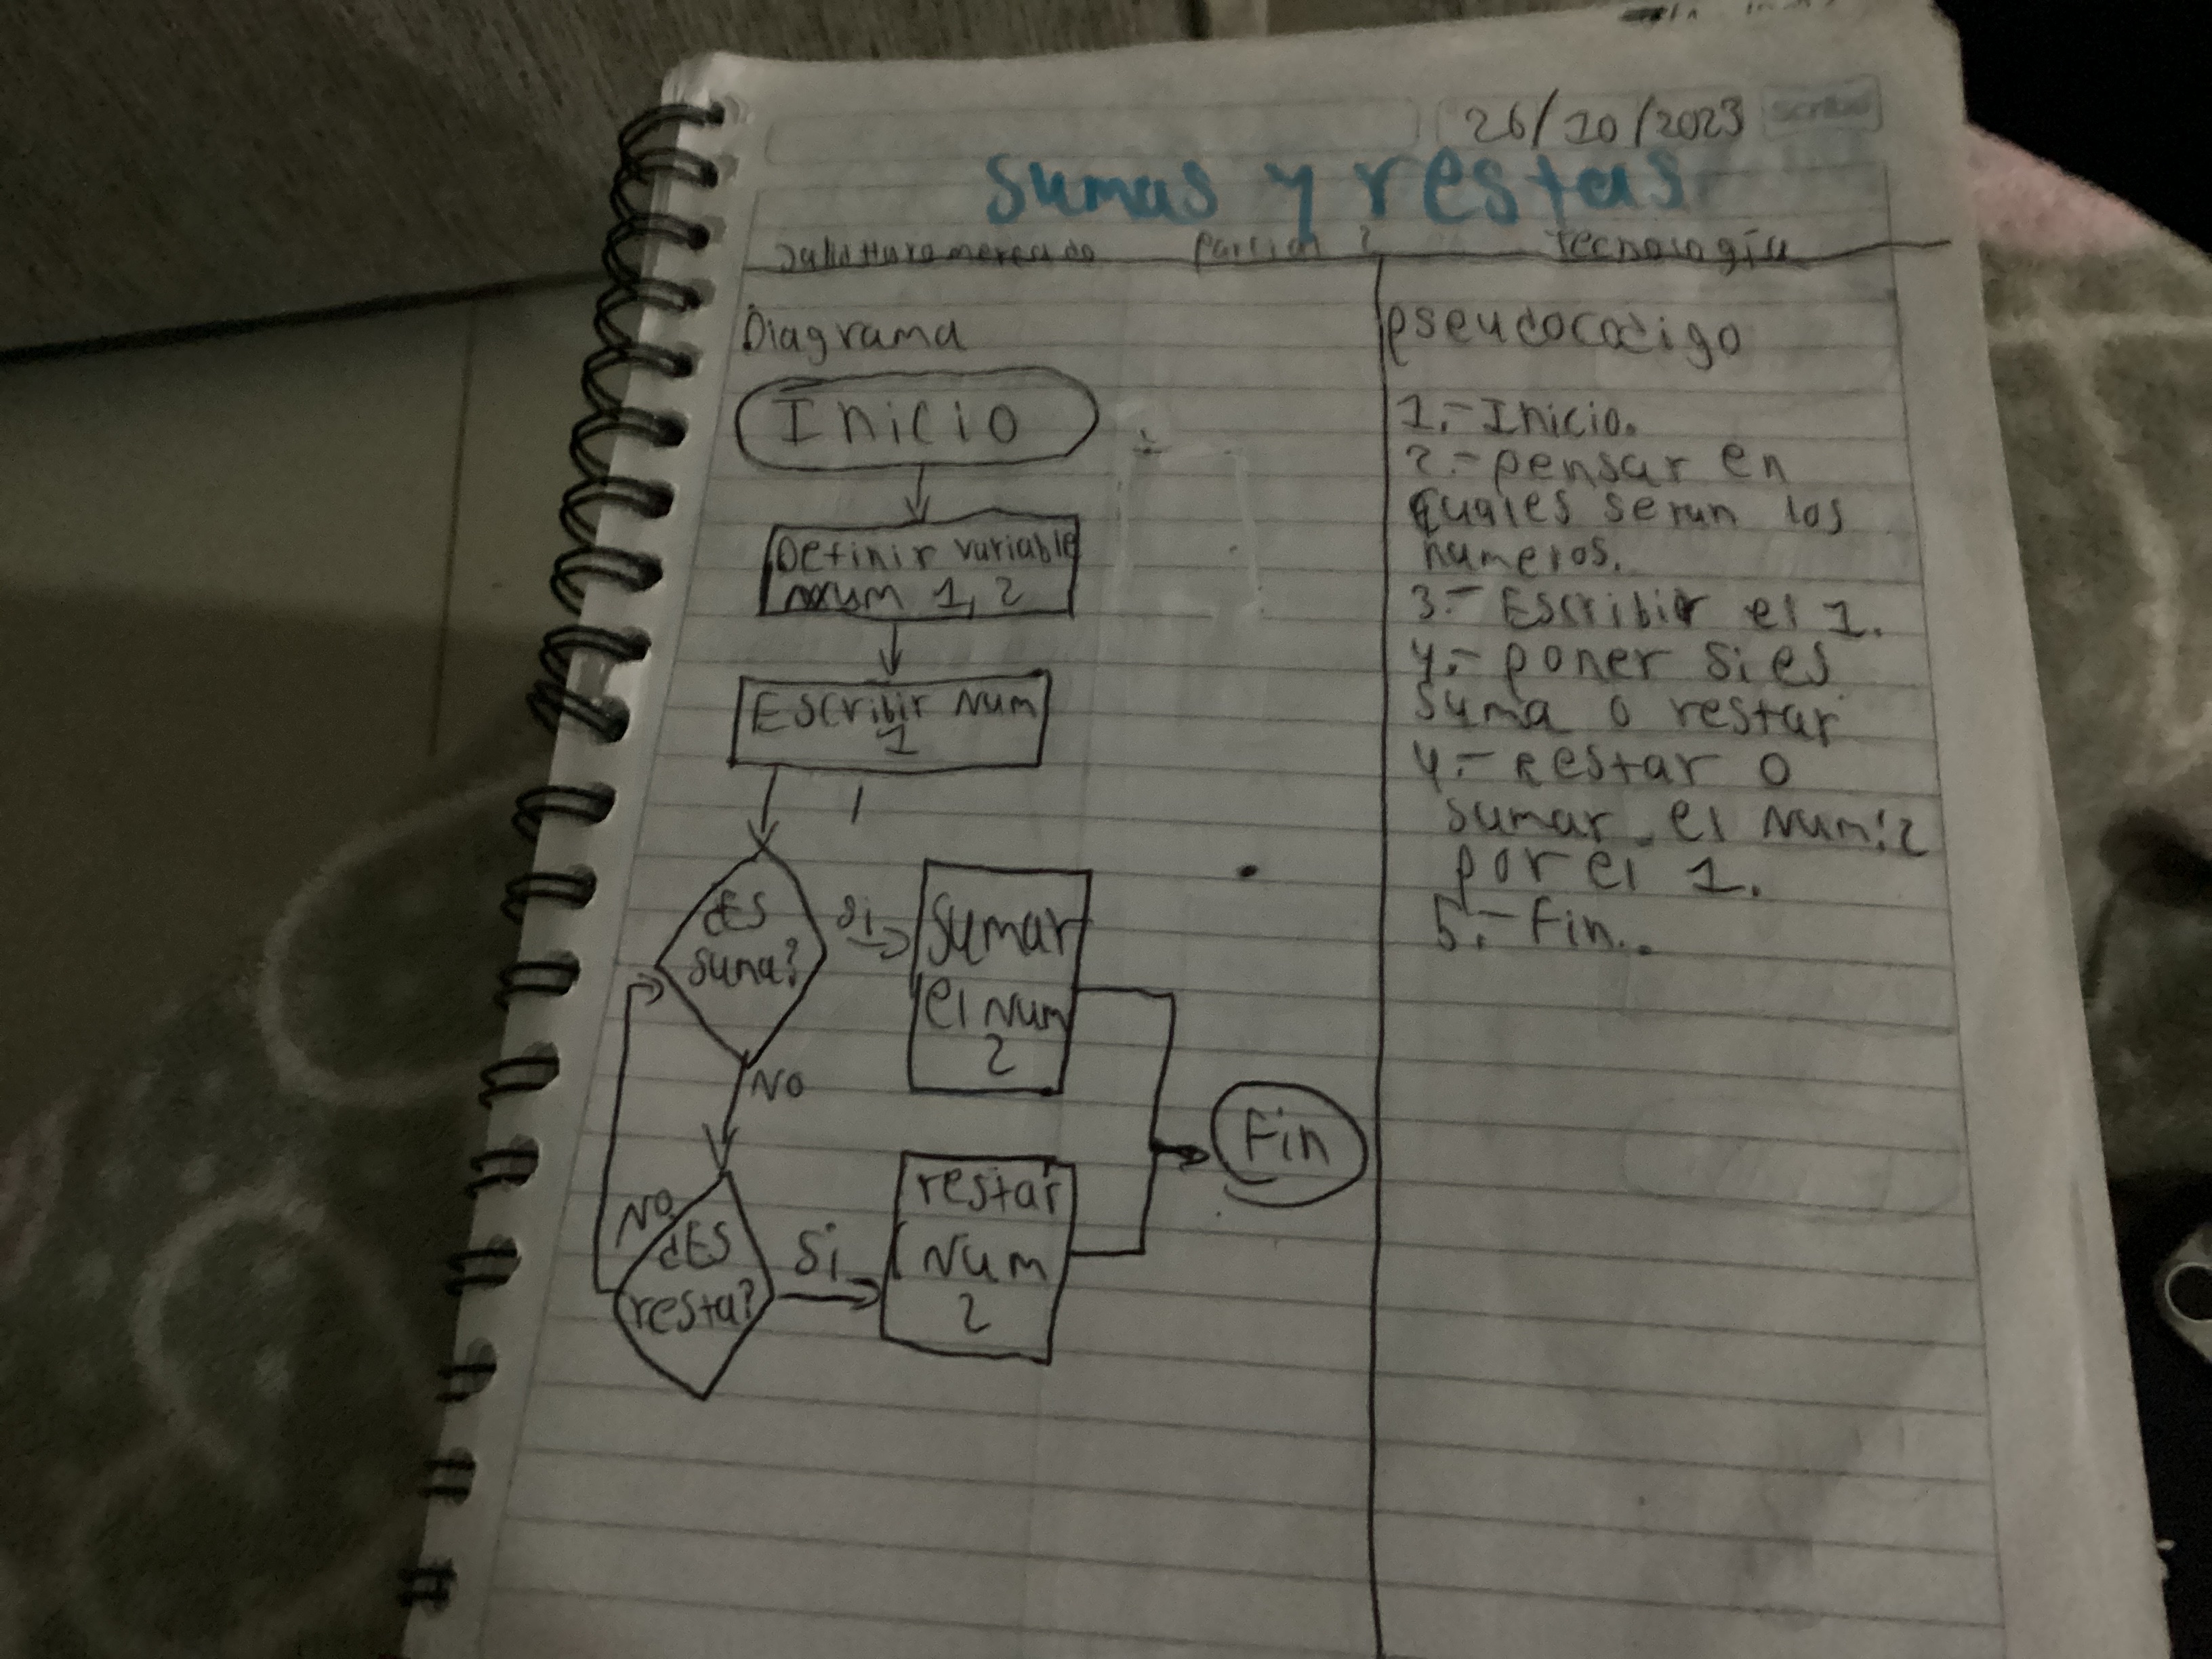 26/10/2023
Scribe
Sumas y restas
parcial 2
Tecnología
Diagrama
Inicio
Definir variable
num 1, 2
Escribir Num
1
¿ES
suma?
Si
Sumar
el Num
2
NO
NO
¿ES
resta?
Si
restar
Num
2
Fin
pseudocodigo
1.- Inicio.
2.- pensar en
quales seran los
numeros.
3.- Escribir el 1.
4.- poner si es
suma o restar
4.- Restar o
sumar el Num:2
por el 1.
5.- Fin.